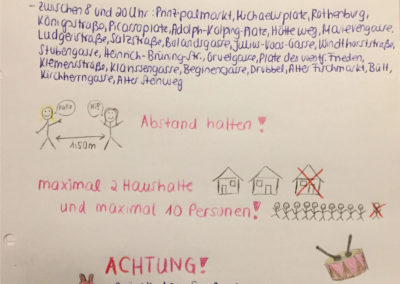 - zwischen 8 und 20 Uhr: Prinzipalmarkt, Michaelisplatz, Rothenburg,
Königstraße, Picassoplatz, Adolph-Kolping-Platz, Hötteweg, Marievengasse,
Ludgeristraße, Salzstraße, Bolandsgasse, Julius-Voos-Gasse, Windthorststraße,
Stubengasse, Heinrich-Brüning-Str., Gruetgasse, Platz des westf. Frieden,
Klemensstraße, Klarissengasse, Beginengasse, Drubbel, Alter Fischmarkt, Bült,
Kirchherrngasse, Alter Steinweg
Hallo
Hi!
1,50m
Abstand halten!
maximal 2 Haushalte
und maximal 10 Personen!
ACHTUNG!